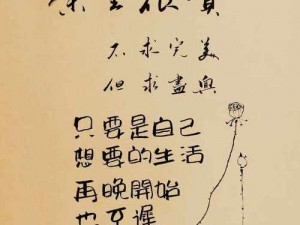 不求完美
但求盡興
只要是自己
想要的生活
再晚開始
也不遲